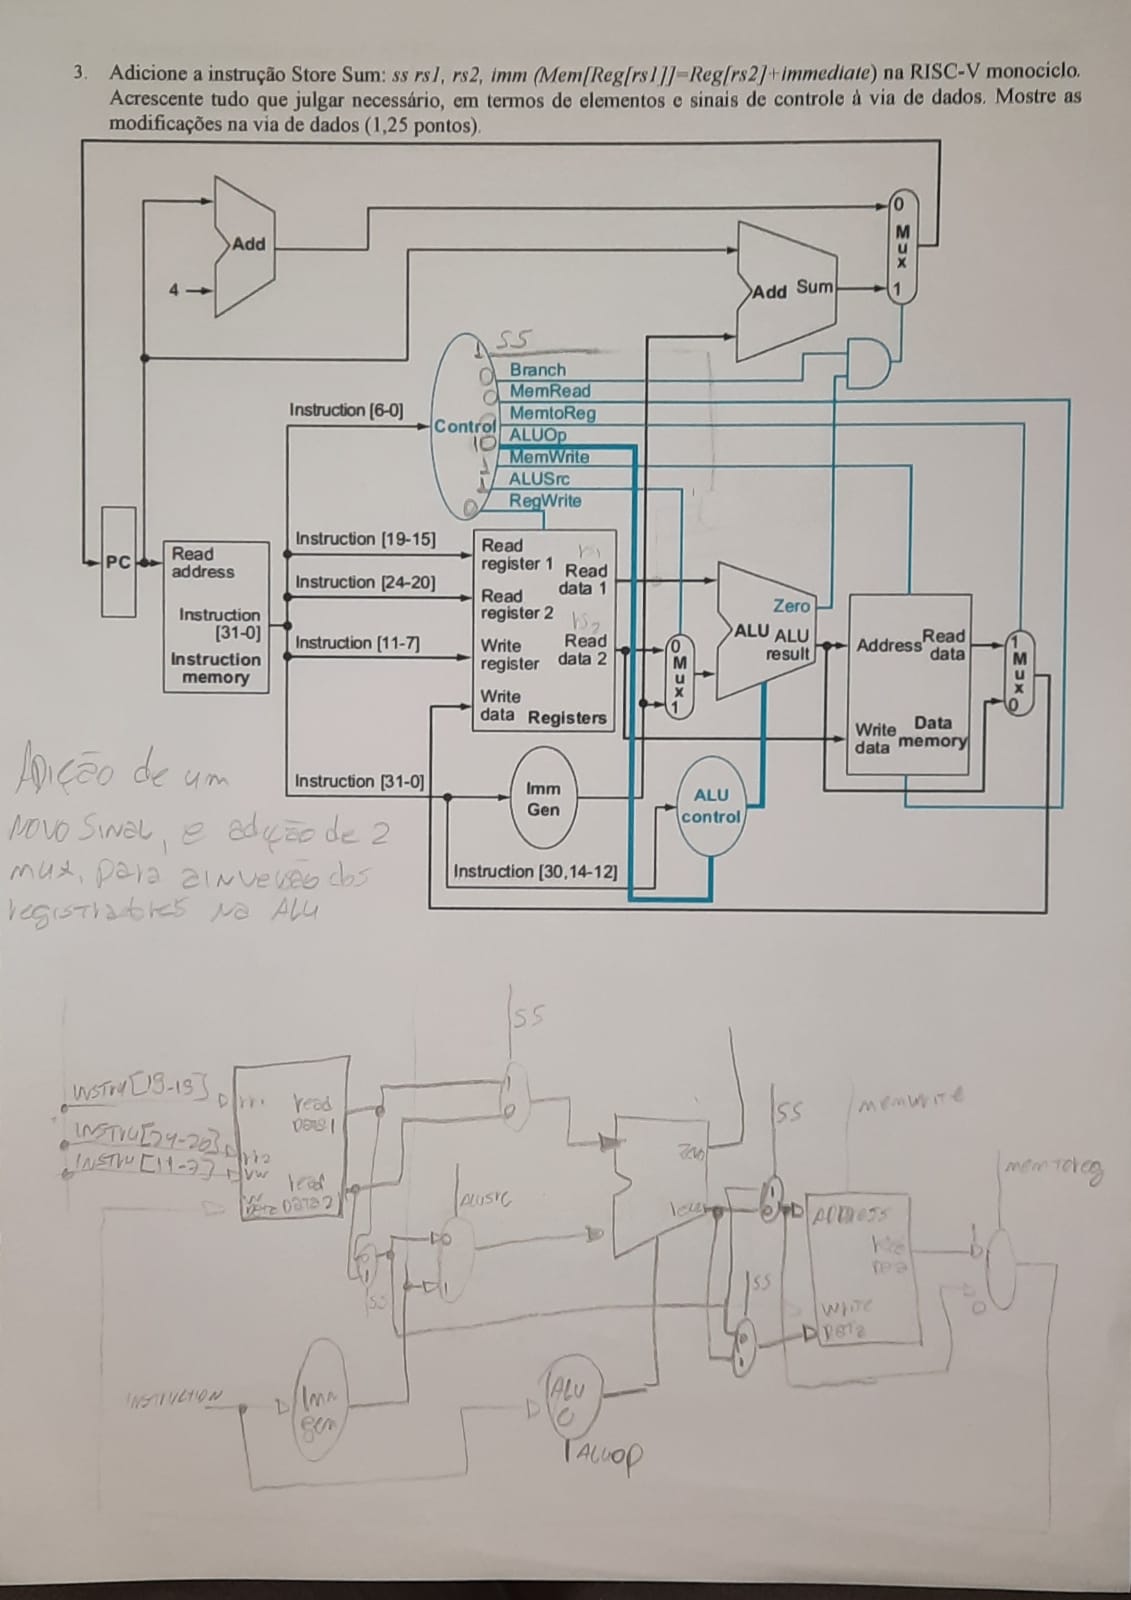 3. Adicione a instrução Store Sum: ss rs1, rs2, imm (Mem[Reg[rs1]]=Reg[rs2]+immediate) na RISC-V monociclo.
Acrescente tudo que julgar necessário, em termos de elementos e sinais de controle à via de dados. Mostre as
modificações na via de dados (1,25 pontos).
Add
4
Add Sum
0
M
u
x
1
1 SS
0 Branch
0 MemRead
MemtoReg
Instruction [6-0]
Control
10 ALUOp
1 MemWrite
1 ALUSrc
0 RegWrite
PC
Read
address
Instruction
[31-0]
Instruction
memory
Instruction [19-15]
Instruction [24-20]
Instruction [11-7]
Read
register 1
Read
data 1
rs1
Read
register 2
rs2
Read
data 2
Write
register
Write
data Registers
0
M
u
x
1
Zero
ALU ALU
result
Address
Read
data
Write
data
Data
memory
1
M
u
x
0
Instruction [31-0]
Imm
Gen
ALU
control
Instruction [30,14-12]
Adição de um
novo sinal, e adção de 2
mux, para a inversão dos
registradores na ALU
SS
INSTRU[19-15]
INSTRU[24-20]
INSTRU[11-7]
rr1
rr2
read
Data1
read
Data2
1
0
ALUSrc
0
1
SS
zero
SS
1
0
memwrite
memtoreg
ADDRESS
write
Data
SS
0
1
1
0
INSTRUCTION
Imm
gen
ALU
C
ALUOP